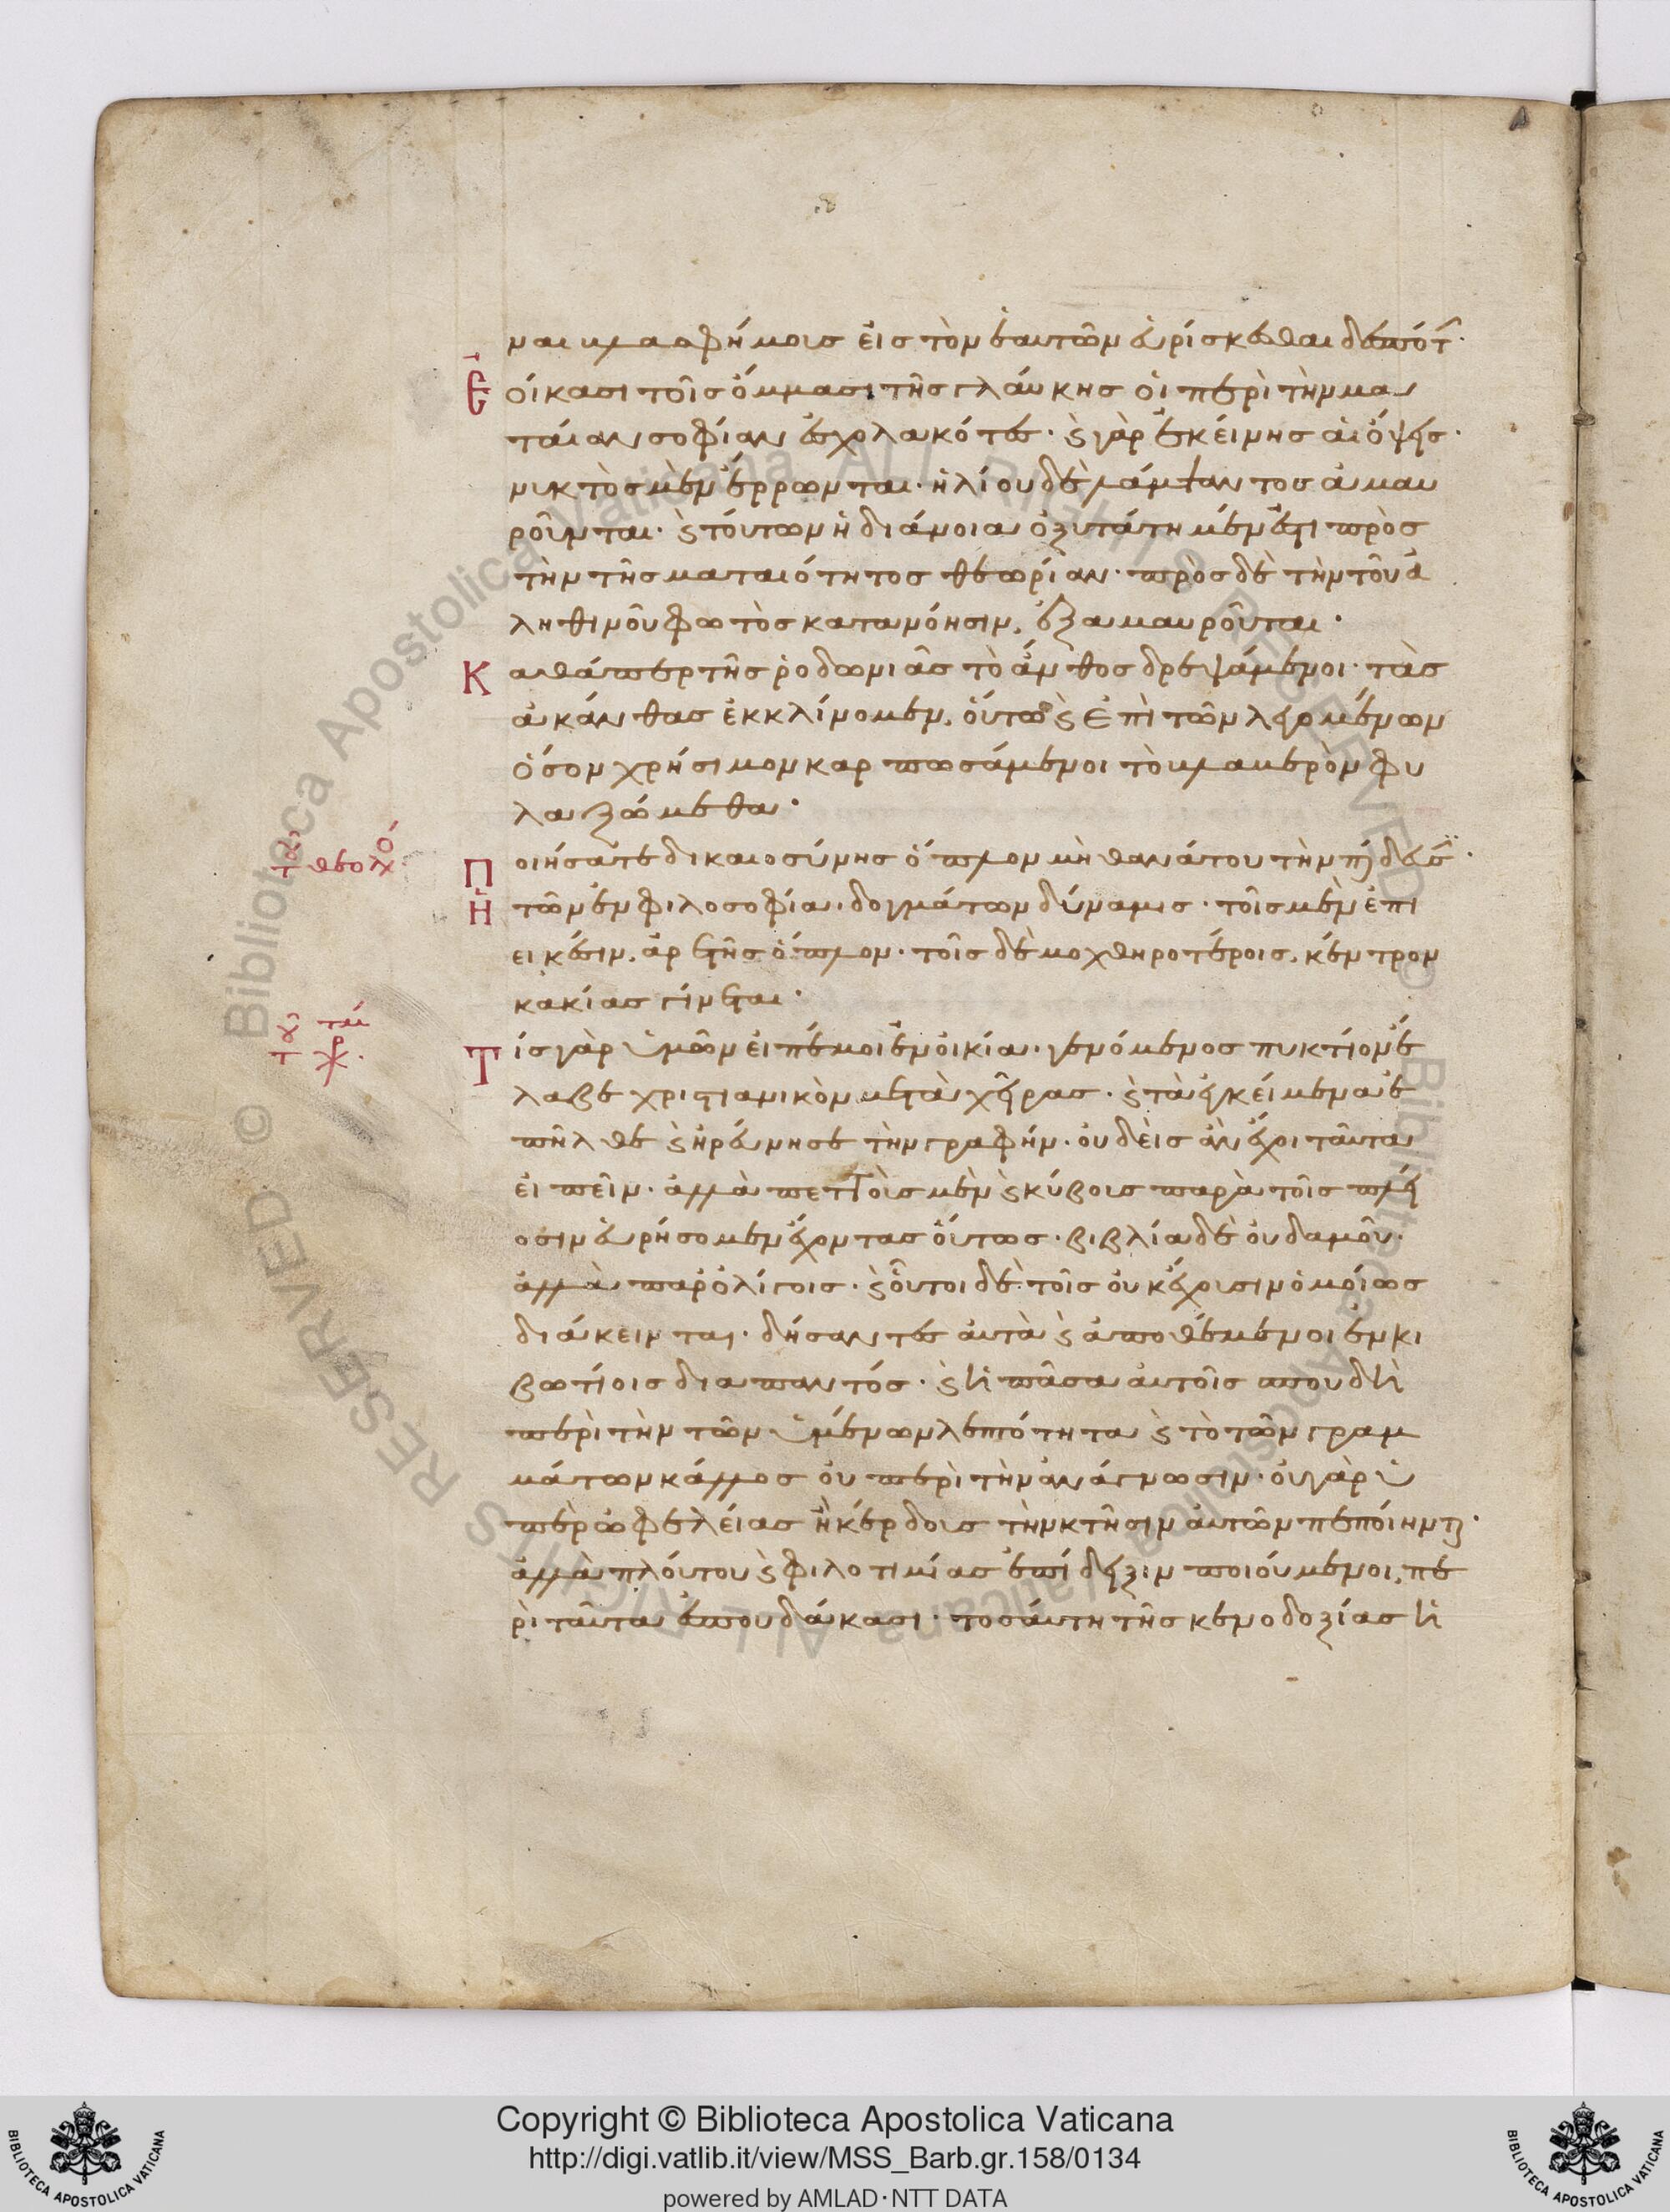 ναι βλασφήμοις εἰς τὸν ἑαυτῶν εὑρίσκεσθαι δεσπότ
Ἐοίκασι τοῖς ὄμμασι τῆς γλαύκης οἱ περὶ τὴν μα
ταίαν σοφίαν ἐσχολακότες· ϗ γὰρ ἐκείνης αἱ ὄψεις·
νυκτὸς μὲν ἔρρωνται· ἡλίου δὲ λάμψαντος ἀμαυ
ροῦνται· ϗ τούτων ἡ διάνοια ὀξυτάτη μέν ἐστι πρὸς
τὴν τῆς ματαιότητος θεωρίαν· πρὸς δὲ τὴν τοῦ ἀ
ληθινοῦ φωτὸς κατανόησιν, ἐξαμαυροῦται·
Καθάπερ τῆς ῥοδωνιᾶς τὸ ἄνθος δρεψάμενοι· τὰς
ἀκάνθας ἐκκλίνομεν, οὕτω ϗ ἐπὶ τῶν λεγομένων
ὅσον χρήσιμον καρπωσάμενοι τὸ βλαβερὸν φυ
λαξώμεθα·
τοῦ θεολό
Ποιήσατε δικαιοσύνης ὅπλον μὴ θανάτου τὴν παίδευσ·
Ἡ τῶν ἐν φιλοσοφία δογμάτων δύναμις· τοῖς μὲν ἐπι
εικέσιν, ἀρετῆς ὅπλον· τοῖς δὲ μοχθηροτέροις, κέντρον
κακίας γίνεται·
τοῦ χρ
Τίς γὰρ ὑμῶν εἰπέ μοι ἐν οἰκία γενόμενος πυκτίον ἔ
λαβε χριστιανικὸν μετὰ χεῖρας· ϗ τὰ ἐγκείμενα ἐ
πῆλθε ϗ ἠρεύνησε τὴν γραφήν· οὐδεὶς ἂν ἔχοι ταῦτα
εἰπεῖν· ἀλλὰ πεττοὺς μὲν ϗ κύβοις παρὰ τοῖς πλεί
οσιν εὑρήσομεν ἔχοντας οὕτως· βιβλία δὲ οὐδαμοῦ·
ἀλλὰ παρ' ὀλίγοις· ϗ οὗτοι δὲ τοῖς οὐκ ἔχουσιν ὁμοίως
διάκεινται· δήσαντες αὐτὰ ϗ ἀποθέμενοι ἐν κι
βωτίοις διαπαντός· ϗ ἡ πᾶσα αὐτοῖς σπουδὴ
περὶ τὴν τῶν ὑμένων λεπτότητα ϗ τὸ τῶν γραμ
μάτων κάλλος οὐ περὶ τὴν ἀνάγνωσιν· οὐ γὰρ ὑ
πὲρ ὠφελείας ἢ κέρδους τὴν κτῆσιν αὐτῶν πεποίηνται·
ἀλλὰ πλούτου ϗ φιλοτιμίας ἐπίδειξιν ποιούμενοι, πε
ρὶ ταῦτα ἐσπουδάκασι· τοσαύτη τῆς κενοδοξίας ἡ
Copyright © Biblioteca Apostolica Vaticana
http://digi.vatlib.it/view/MSS_Barb.gr.158/0134
powered by AMLAD·NTT DATA
BIBLIOTECA APOSTOLICA VATICANA
BIBLIOTECA APOSTOLICA VATICANA
© Biblioteca Apostolica Vaticana ALL RIGHTS RESERVED
© Biblioteca Apostolica Vaticana ALL RIGHTS RESERVED